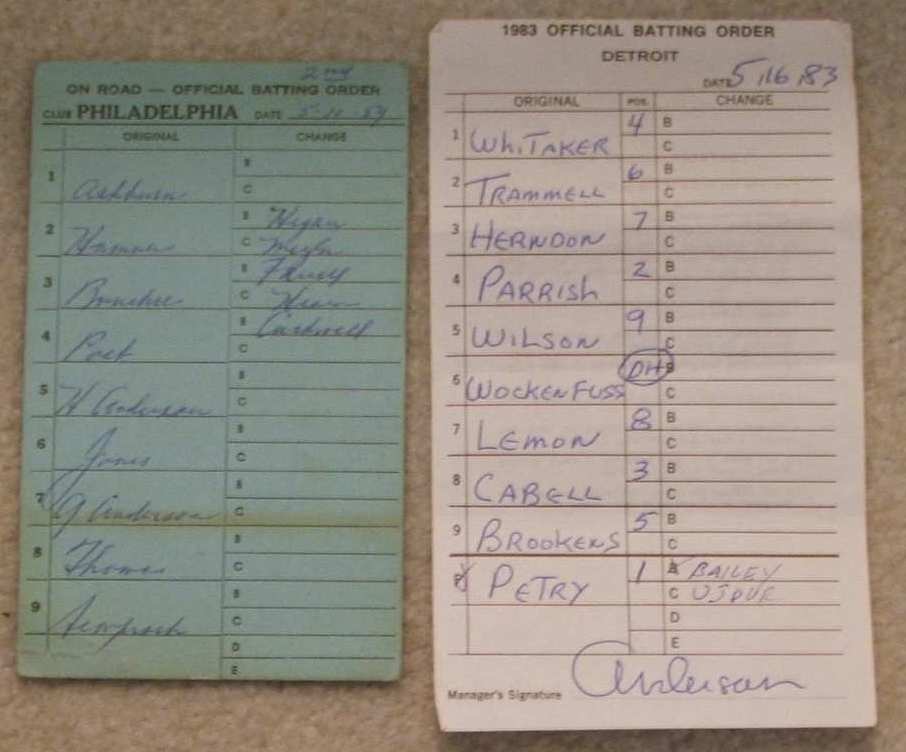 2nd
ON ROAD — OFFICIAL BATTING ORDER
CLUB PHILADELPHIA DATE 5 10 59
ORIGINAL CHANGE
1 Ashburn B
C
2 Hamner B Hegan
C
3 Bouchee B
C
4 Post B Cardwell
C
5 H Anderson B
C
6 Jones B
C
7 G Anderson B
C
8 Thomas B
C
9 Semproch B
C
D
E
1983 OFFICIAL BATTING ORDER
DETROIT
DATE 5/16/83
ORIGINAL POS. CHANGE
1 WhiTAKER 4 B
C
2 TRAMMELL 6 B
C
3 HERNDON 7 B
C
4 PARRISh 2 B
C
5 WILSON 9 B
C
6 WOCKENFUSS DH B
C
7 LEMON 8 B
C
8 CABELL 3 B
C
9 BROOKENS 5 B
C
P PETRY 1 BAILEY
C UJDUR
D
E
Manager's Signature Anderson